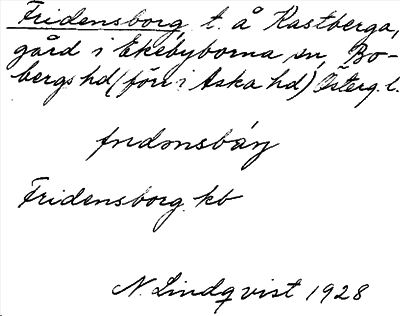 Fridensborg t. å Kastberga,
gård i Ekebyborna sn, Bo-
bergs hd (förr i Aska hd) Österg. l.
Fridensborg. kb
N. Lindqvist 1928